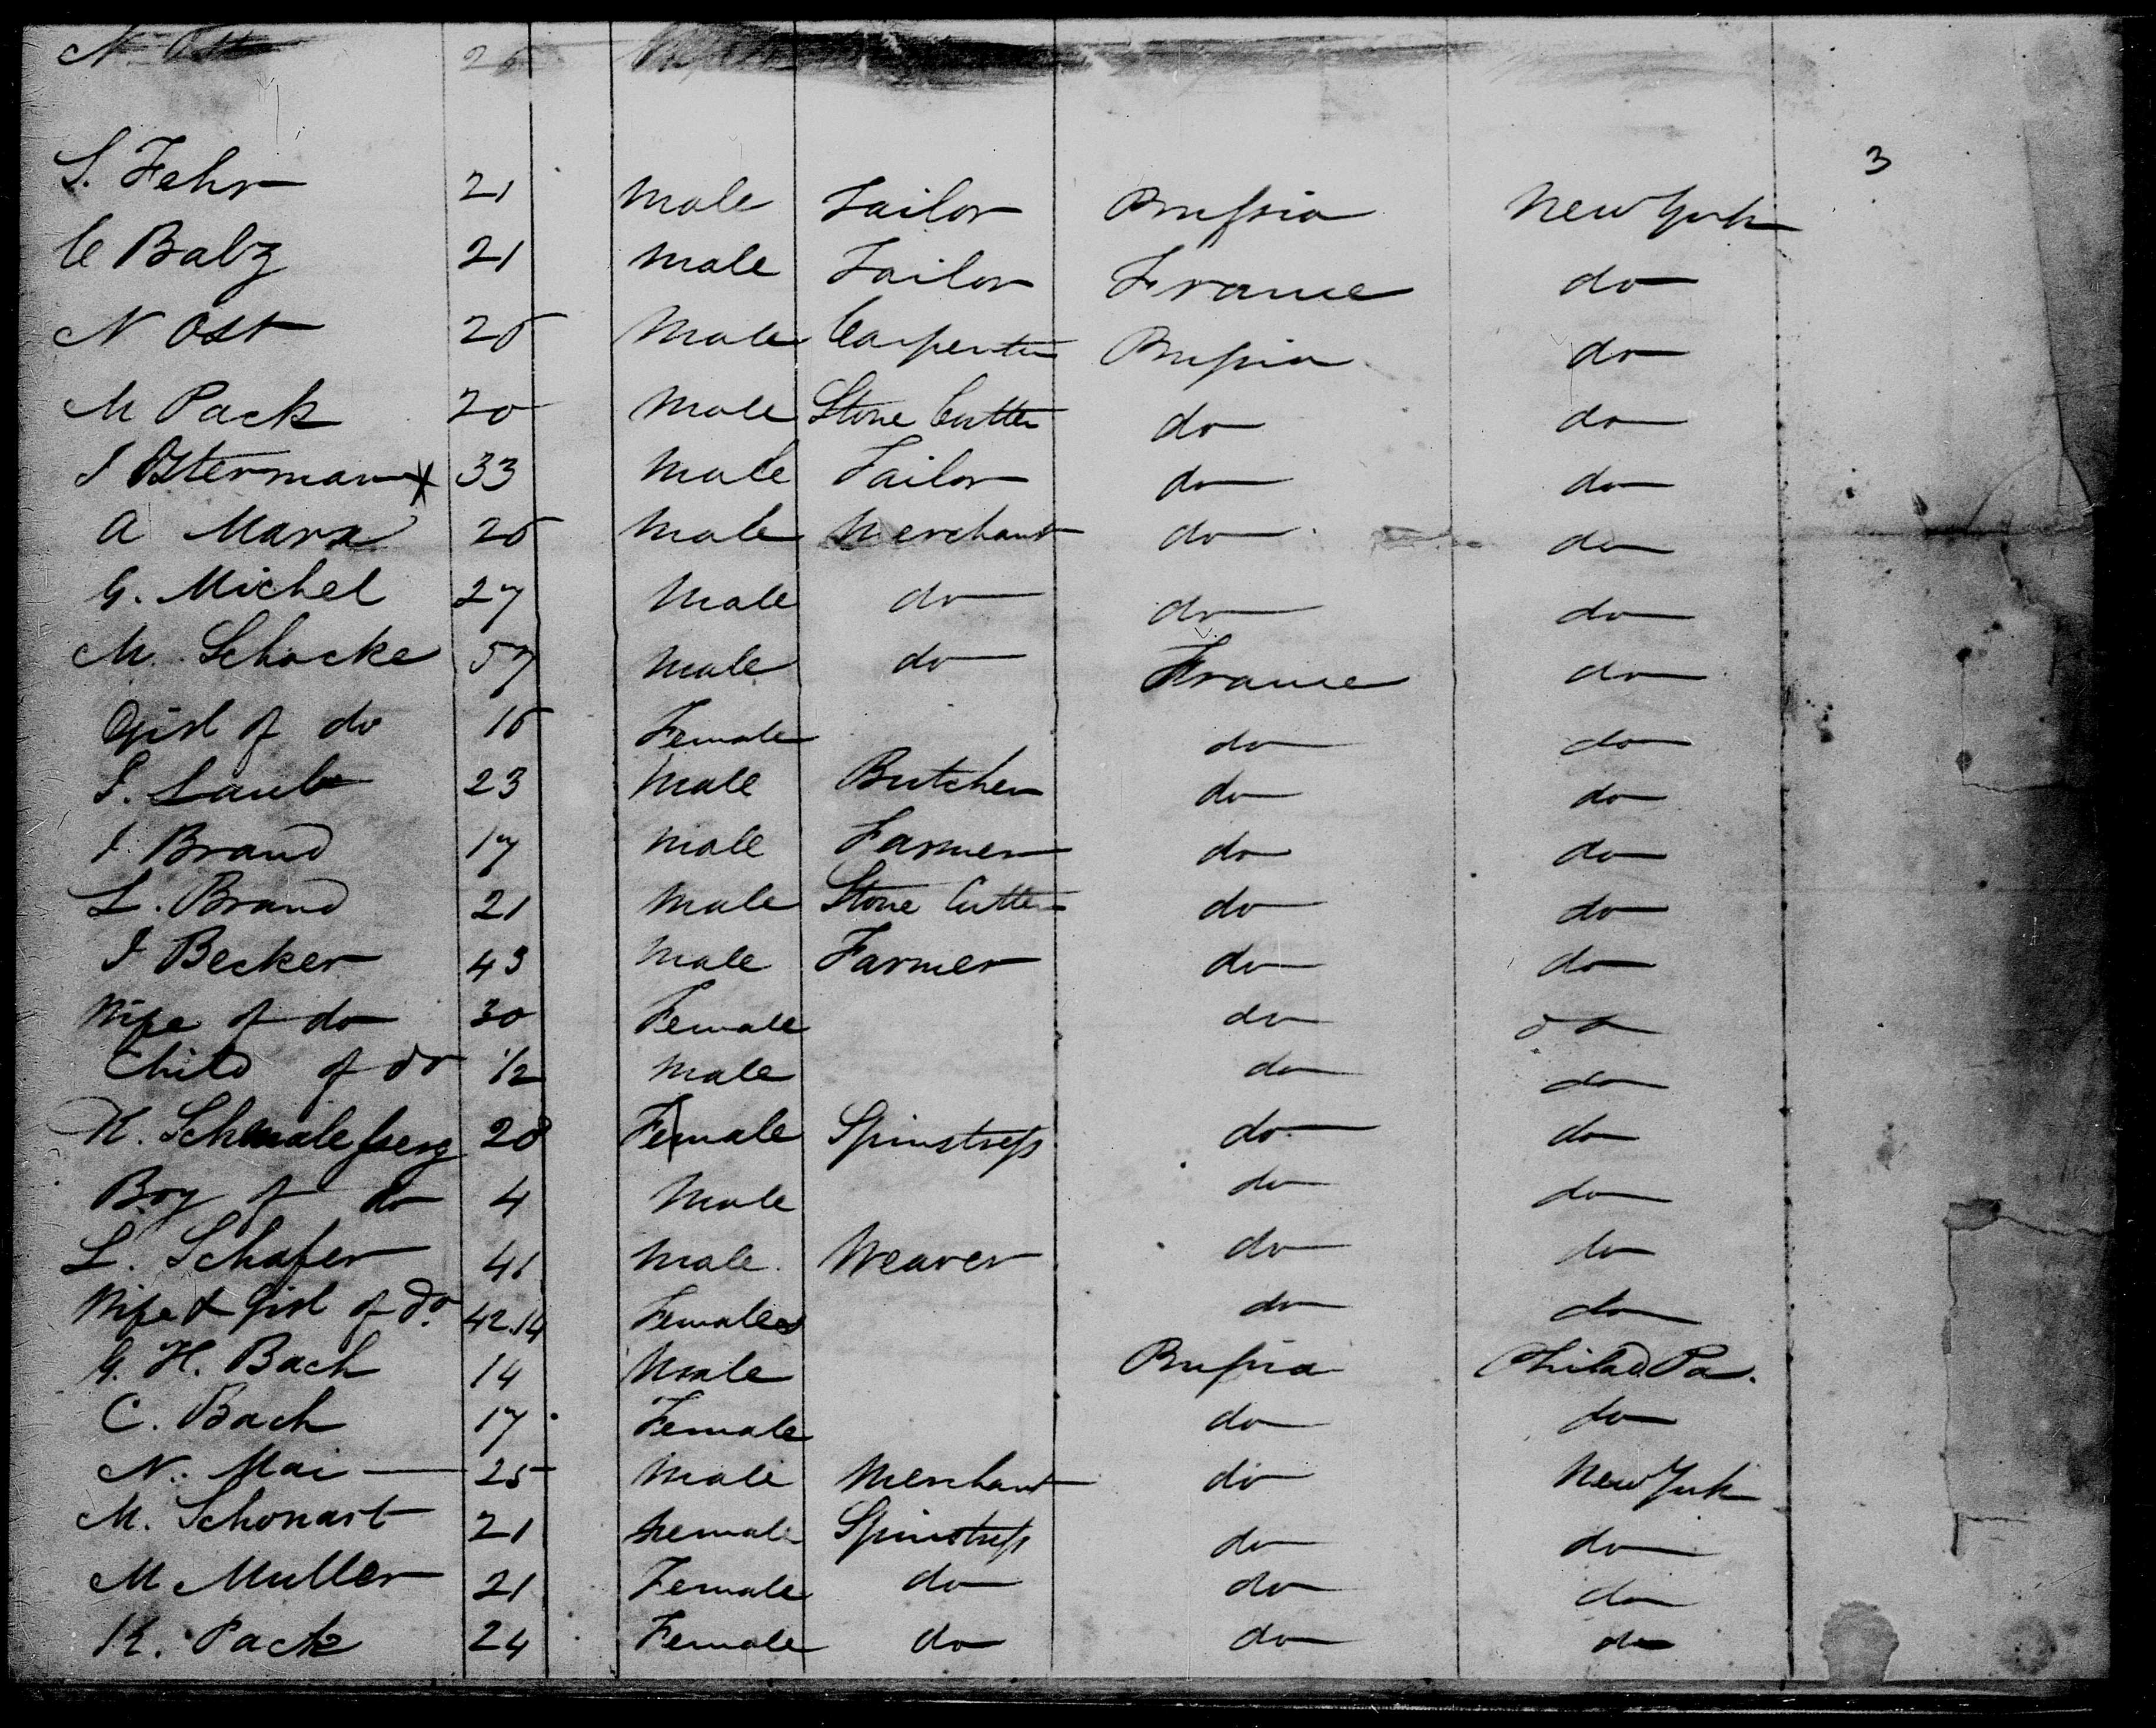 N. Ost 26
3
S. Fehr 21 Male Tailor Prussia New York
C Balz 21 Male Tailor France do
N Ost 26 Male Carpenter Prussia do
M Pack 20 Male Stone Cutter do do
J Ostermann X 33 Male Tailor do do
A Marx 26 Male Merchant do do
G. Michel 27 Male do do do
M. Schocke 57 Male do France do
Girl of do 16 Female do do
S. Laub 23 Male Butcher do do
J. Brand 17 Male Farmer do do
L. Brand 21 Male Stone Cutter do do
J Becker 43 Male Farmer do do
Wife of do 30 Female do do
Child of do 1/2 Male do do
K. 28 Female Spinstress do do
Boy of do 4 Male do do
L. Schafer 41 Male Weaver do do
Wife & Girl of do. 42.14 Females do do
G. H. Bach 14 Male Prussia Philad. Pa.
C. Bach 17 Female do do
N. Mai 25 Male Merchant do New York
M. Schonart 21 Female Spinstress do do
M Muller 21 Female do do do
K. Pack 24 Female do do do